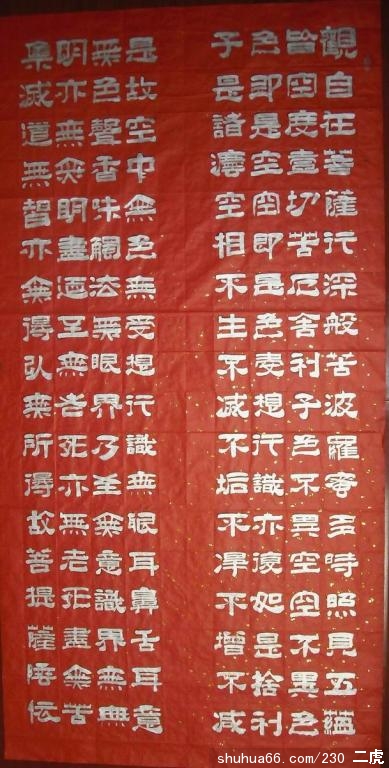 觀自在菩薩行深般若波羅蜜多時照見五蘊
皆空度壹切苦厄舍利子色不異空空不異色
色即是空空即是色受想行識亦復如是捨利
子是諸灋空相不生不滅不垢不淨不增不减
是故空中無色無受想行識無眼耳鼻舌耳意
無色聲香味觸法無眼界乃至無意識界無無
明亦無無明盡迺至無老死亦無老死盡無苦
集滅道無智亦無得以無所得故菩提薩
shuhua66.com/230 二虎